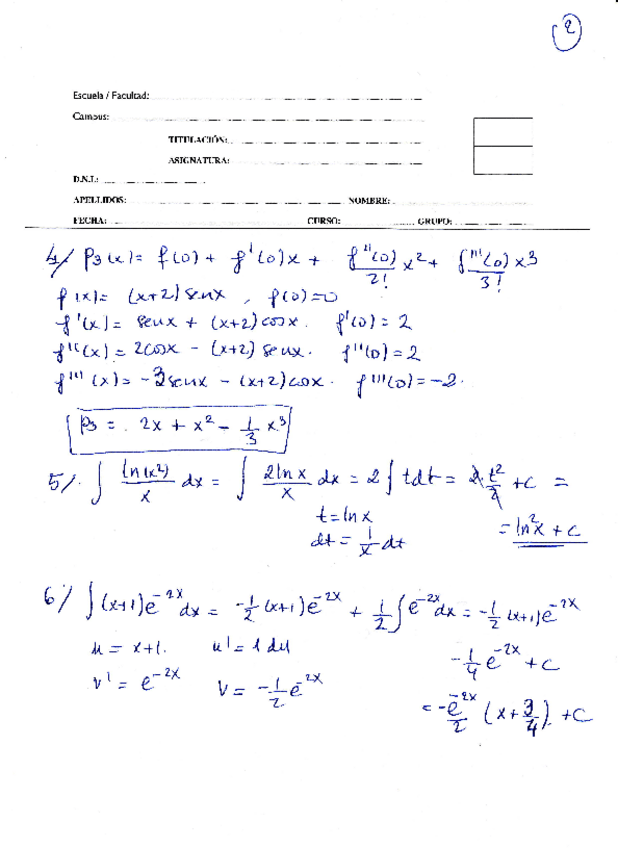 2
Escuela / Facultad:
Campus:
TITULACIÓN:
ASIGNATURA:
D.N.I.:
APELLIDOS: NOMBRE:
FECHA: CURSO: GRUPO:
4/ P3(x) = f(0) + f'(0)x + f''(0)/2! x² + f'''(0)/3! x³
f(x) = (x+2) senx , f(0)=0
f'(x) = senx + (x+2) cosx. f'(0) = 2
f''(x) = 2cosx - (x+2) senx. f''(0) = 2
f'''(x) = -3senx - (x+2)cosx. f'''(0) = -2.
P3 = 2x + x² - 1/3 x³
5/. ∫ ln(x²)/x dx = ∫ 2lnx/x dx = 2∫ t dt = 2 t²/2 + c =
t = lnx = ln²x + c
dt = 1/x dt
6/ ∫(x+1)e^-2x dx = -1/2 (x+1)e^-2x + 1/2 ∫e^-2x dx = -1/2 (x+1)e^-2x
u = x+1. u' = 1 du -1/4 e^-2x + c
v' = e^-2x v = -1/2 e^-2x
= -e^-2x/2 (x + 3/4) + c